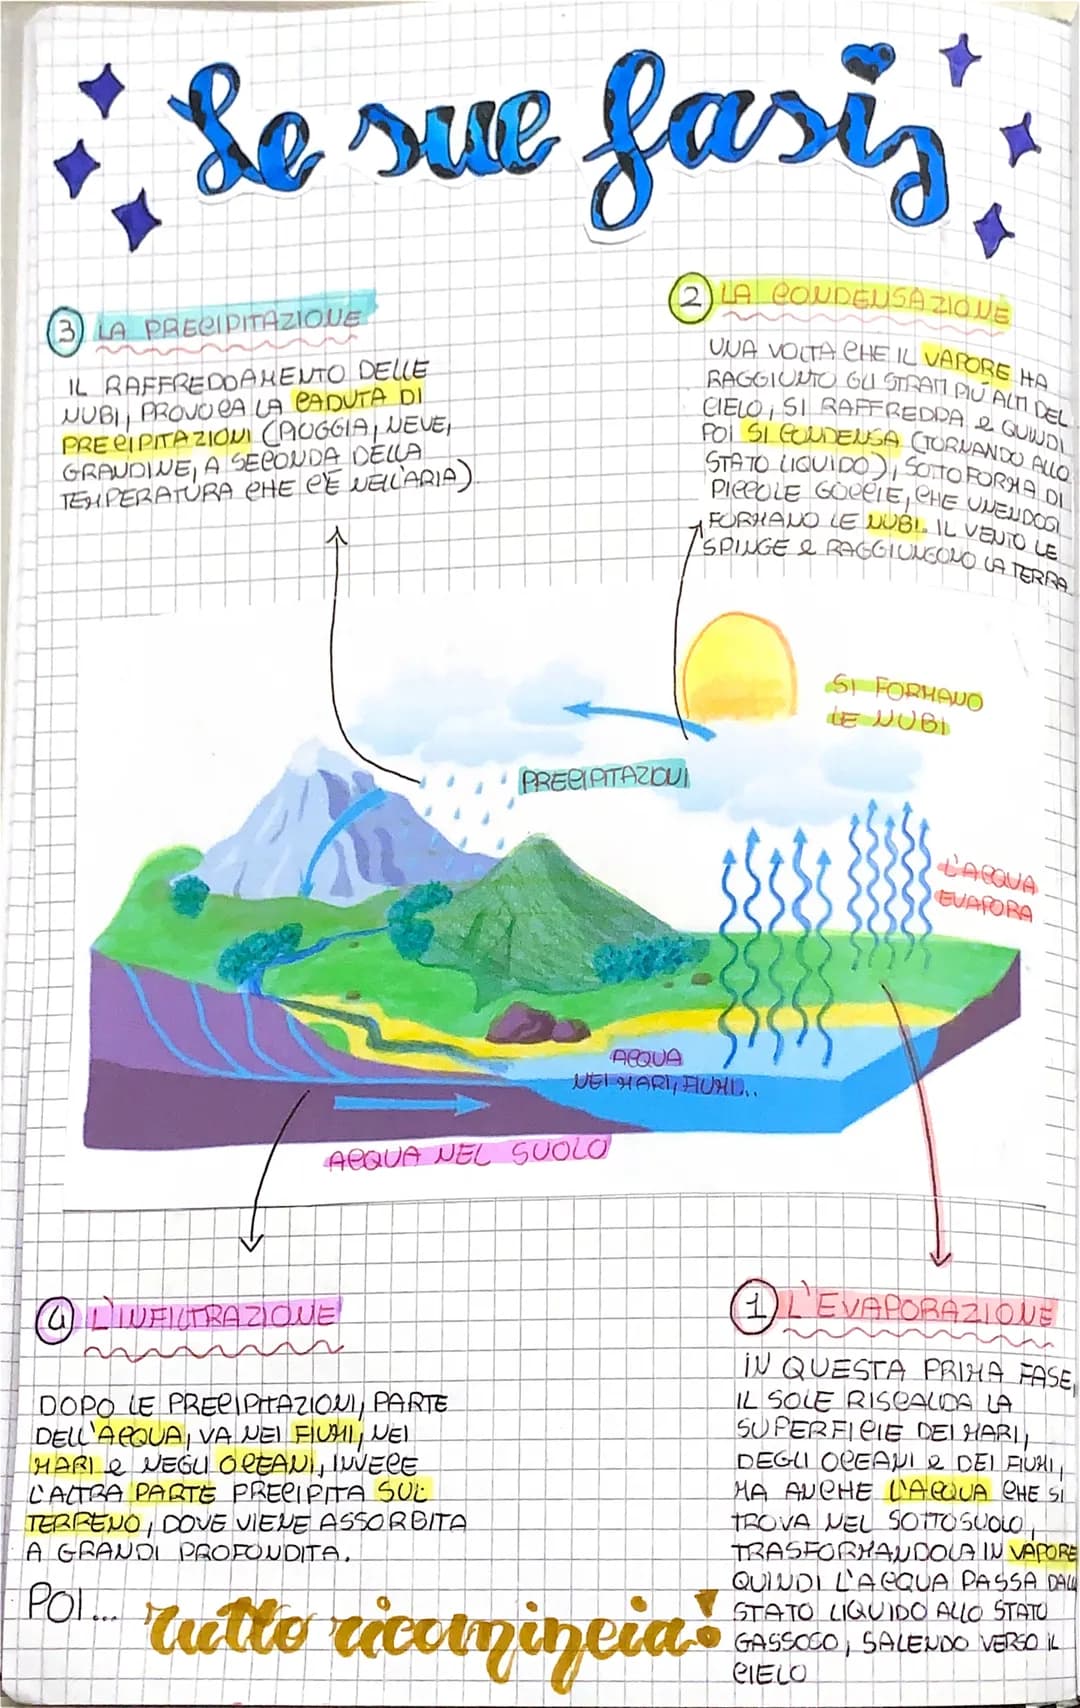 Le sue fasi
3 LA PRECIPITAZIONE
IL RAFFREDDAMENTO DELLE
NUBI, PROVOCA LA CADUTA DI
PRECIPITAZIONI (PIOGGIA, NEVE,
GRANDINE, A SECONDA DELLA
TEMPERATURA CHE C'È NELL'ARIA)
2 LA CONDENSAZIONE
UNA VOLTA CHE IL VAPORE HA
RAGGIUNTO GLI STRATI PIÙ ALTI DEL
CIELO, SI RAFFREDDA, e QUINDI
POI SI CONDENSA (TORNANDO ALLO
STATO LIQUIDO), SOTTO FORMA DI
PICCOLE GOCCIE, CHE UNENDOSI
FORMANO LE NUBI. IL VENTO LE
SPINGE e RAGGIUNGONO LA TERRA
SI FORMANO
LE NUBI
PRECIPITAZIONI
L'ACQUA
EVAPORA
ACQUA
NEI MARI, FIUMI..
ACQUA NEL SUOLO
4 L'INFILTRAZIONE
DOPO LE PRECIPITAZIONI, PARTE
DELL'ACQUA, VA NEI FIUMI, NEI
MARI e NEGLI OCEANI, INVECE
L'ALTRA PARTE PRECIPITA SUL
TERRENO, DOVE VIENE ASSORBITA
A GRANDI PROFONDITA.
POI... tutto ricomincia!
1 L'EVAPORAZIONE
IN QUESTA PRIMA FASE,
IL SOLE RISCALDA LA
SUPERFICIE DEI MARI,
DEGLI OCEANI e DEI FIUMI,
MA ANCHE L'ACQUA CHE SI
TROVA NEL SOTTOSUOLO,
TRASFORMANDOLA IN VAPORE
QUINDI L'ACQUA PASSA DALLO
STATO LIQUIDO ALLO STATO
GASSOSO, SALENDO VERSO IL
CIELO